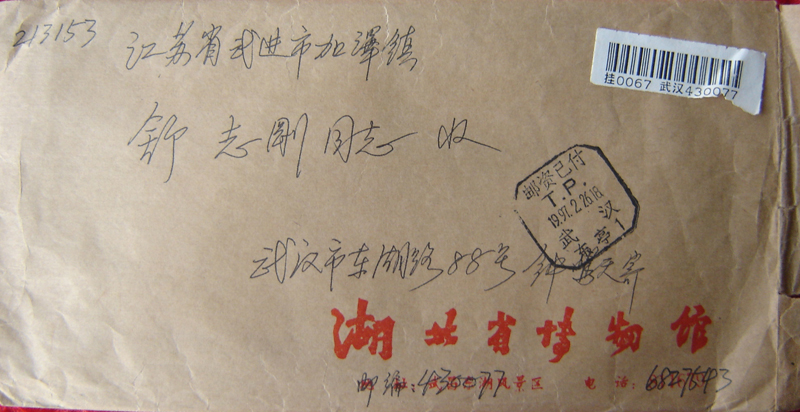 213153
江苏省武进市加泽镇
挂0067 武汉430077
舒志刚同志 收
邮资已付
T.P.
19.97.2.26.18
武汉
东亭1
武汉市东湖路88号 钟 寄
湖北省博物馆
邮编:430077
风景区 电话:6827543